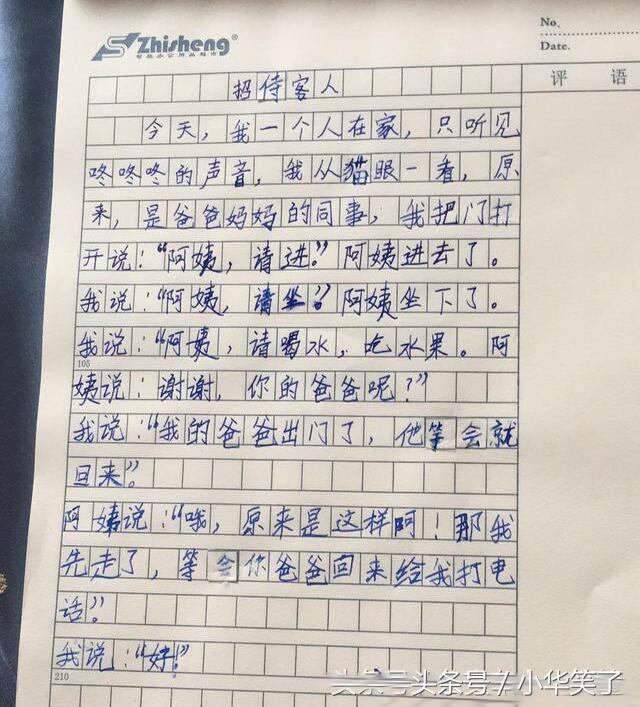 Zhisheng®
No.
Date.
评 语
招侍客人
今天，我一个人在家，只听见
咚咚咚的声音，我从猫眼一看，原
来，是爸爸妈妈的同事，我把门打
开说：“阿姨，请进。”阿姨进去了。
我说：“阿姨，请坐。”阿姨坐下了。
我说：“阿姨，请喝水，吃水果。阿
105
姨说：谢谢，你的爸爸呢？”
我说：“我的爸爸出门了，他等会就
回来。”
阿姨说：“哦，原来是这样阿！那我
先走了，等会你爸爸回来给我打电
话。”
我说：“好！”
210
头条号/小华笑了